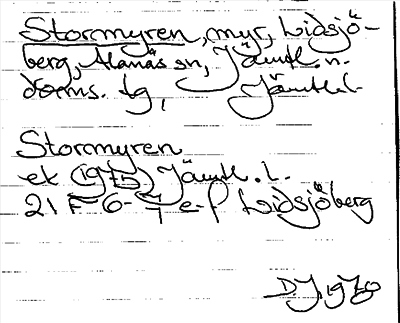 Stormyren, myr, Lidsjö-
berg, Alanäs sn, Jämtl. n.
doms. tg, Jämtl. l.
Stormyren
ek (1975) Jämtl. l.
21 F 6-7 e-f Lidsjöberg
DJ 1978